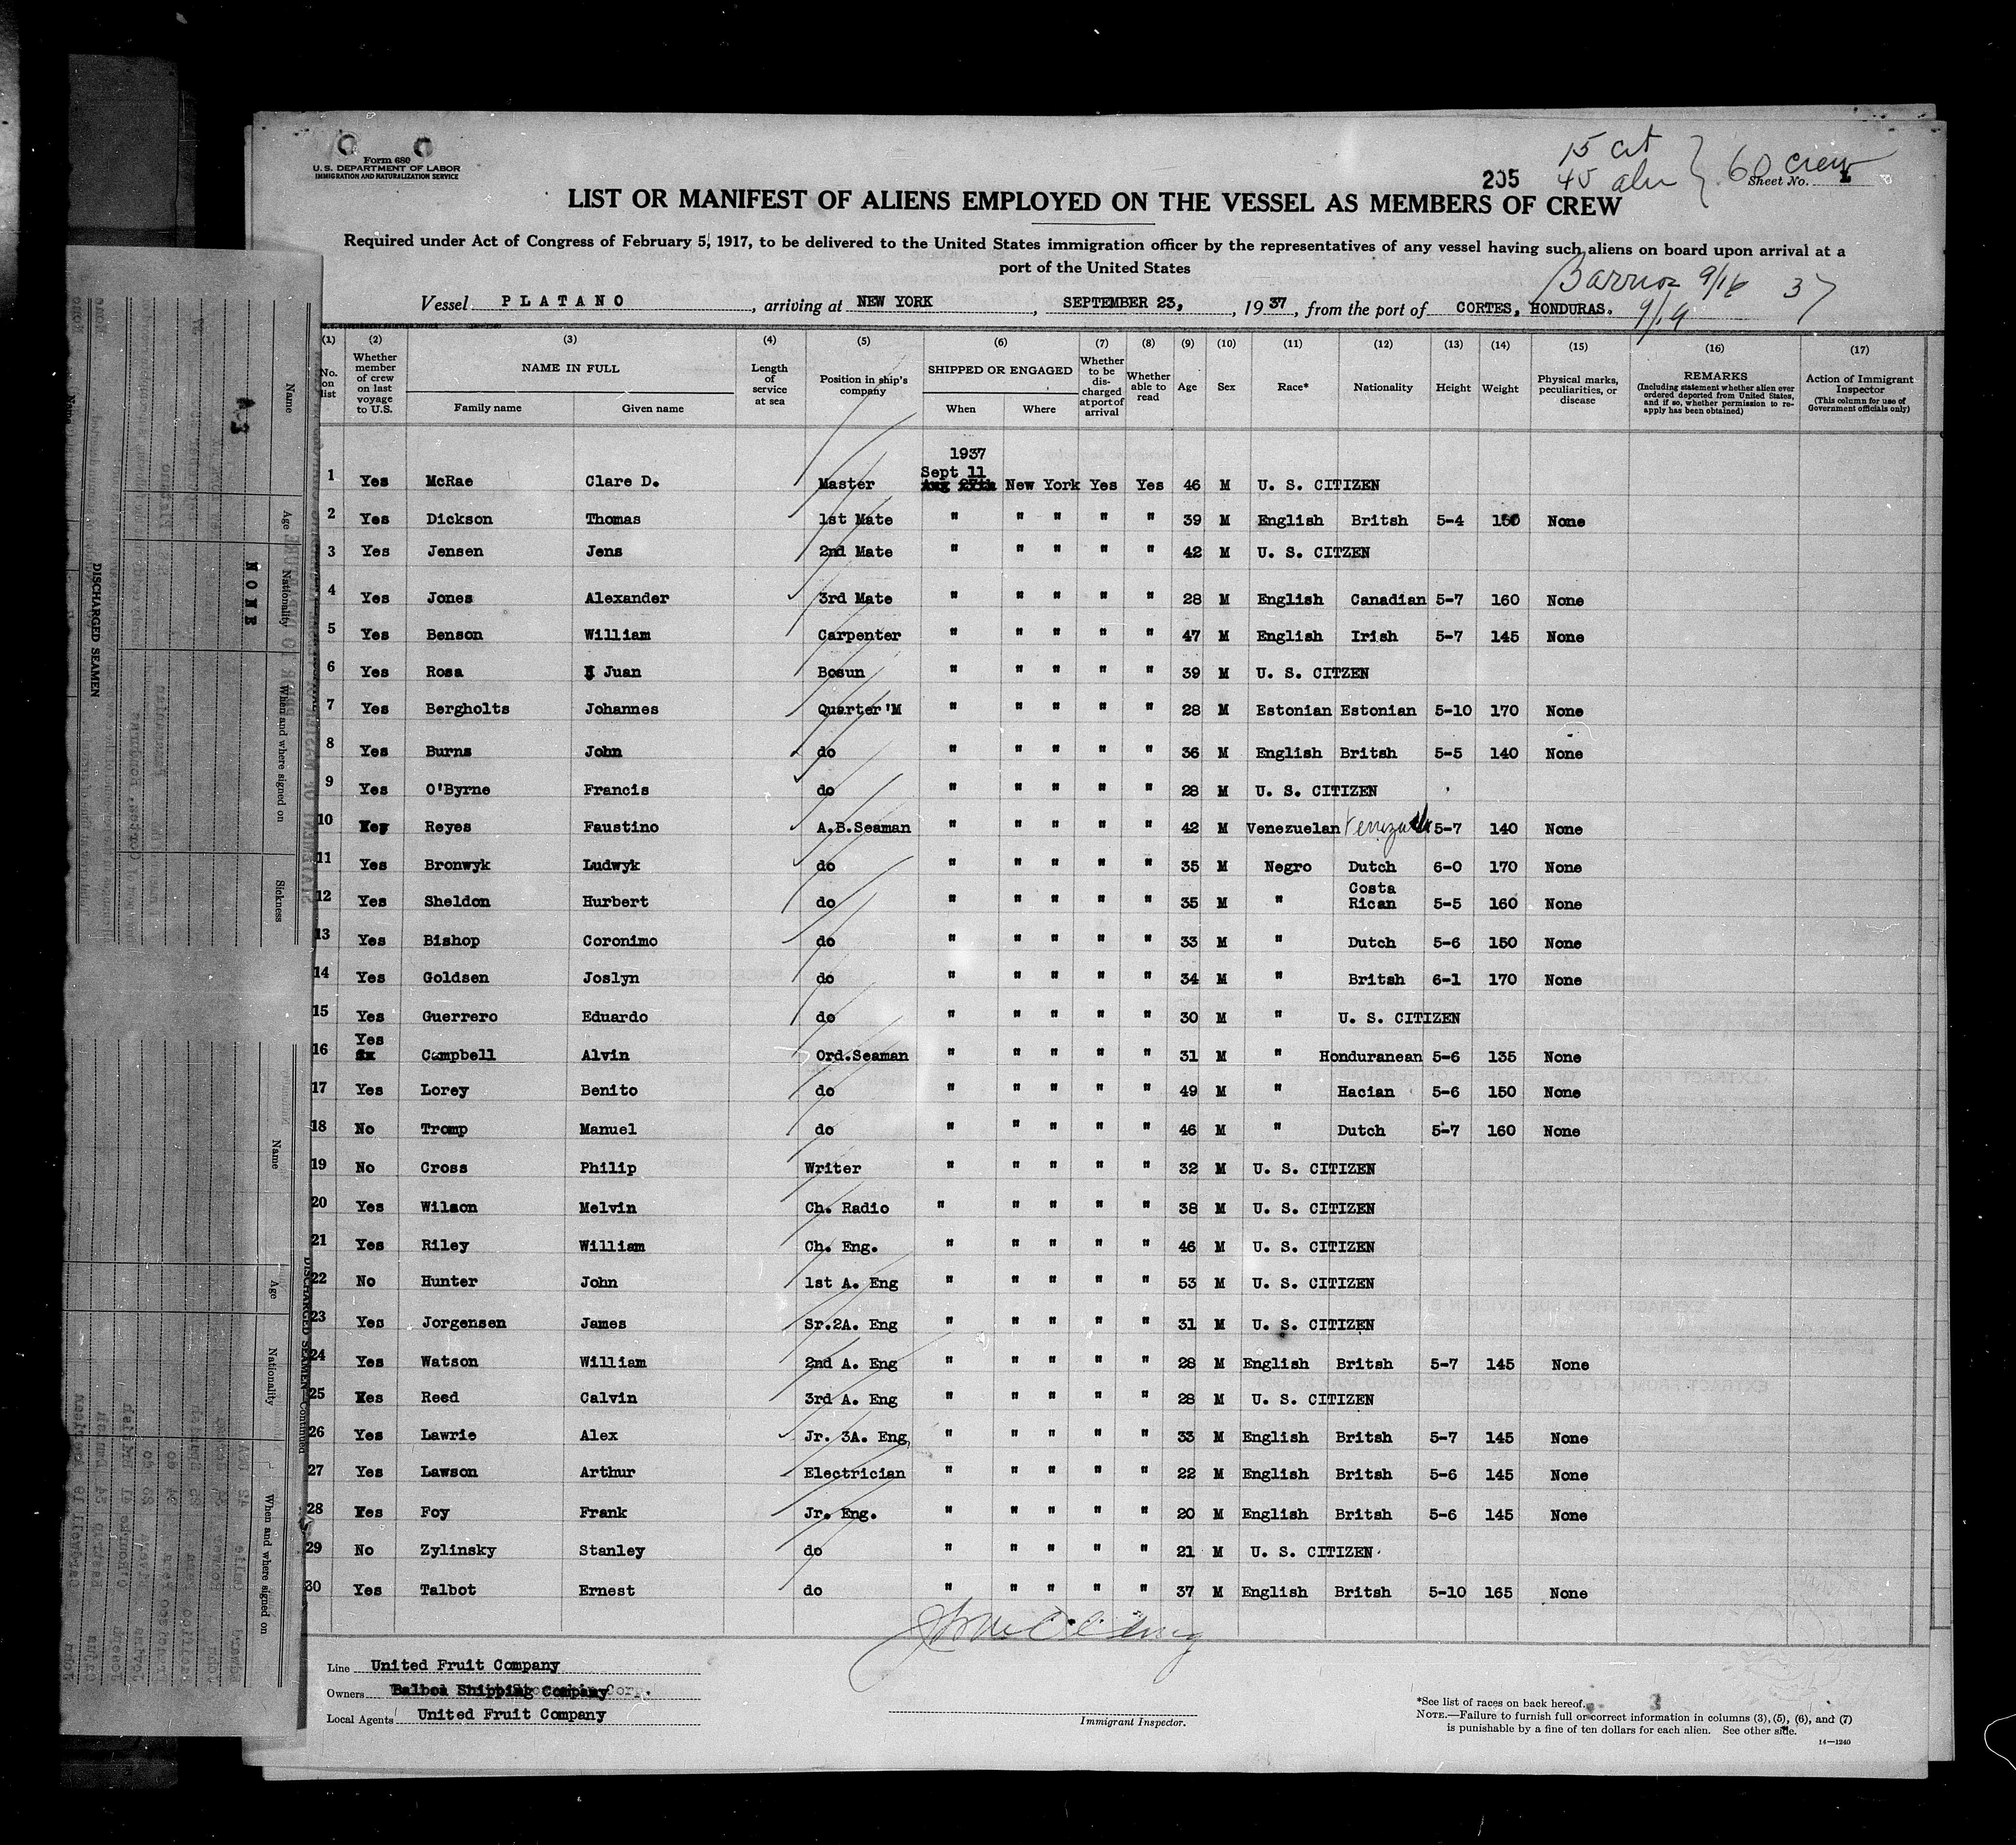 Form 680
U. S. DEPARTMENT OF LABOR
IMMIGRATION AND NATURALIZATION SERVICE
205
15 cit
45 aln
60 crew
Sheet No. 1
LIST OR MANIFEST OF ALIENS EMPLOYED ON THE VESSEL AS MEMBERS OF CREW
Required under Act of Congress of February 5, 1917, to be delivered to the United States immigration officer by the representatives of any vessel having such aliens on board upon arrival at a
port of the United States
Barrios 9/16 37
Vessel PLATANO, arriving at NEW YORK, SEPTEMBER 23, 1937, from the port of CORTES, HONDURAS. 9/19
(1) No. on list (2) Whether member of crew on last voyage to U.S. (3) NAME IN FULL Family name Given name (4) Length of service at sea (5) Position in ship's company (6) SHIPPED OR ENGAGED When Where (7) Whether to be discharged at port of arrival (8) Whether able to read (9) Age (10) Sex (11) Race* (12) Nationality (13) Height (14) Weight (15) Physical marks, peculiarities, or disease (16) REMARKS (Including statement whether alien ever ordered deported from United States, and if so, whether permission to re-apply has been obtained) (17) Action of Immigrant Inspector (This column for use of Government officials only)
1937
Sept 11
1 Yes McRae Clare D. Master Aug 27th New York Yes Yes 46 M U. S. CITIZEN
2 Yes Dickson Thomas 1st Mate " " " " " 39 M English Britsh 5-4 150 None
3 Yes Jensen Jens 2nd Mate " " " " " 42 M U. S. CITZEN
4 Yes Jones Alexander 3rd Mate " " " " " 28 M English Canadian 5-7 160 None
5 Yes Benson William Carpenter " " " " " 47 M English Irish 5-7 145 None
6 Yes Rosa Juan Bosun " " " " " 39 M U. S. CITZEN
7 Yes Bergholts Johannes Quarter'M " " " " " 28 M Estonian Estonian 5-10 170 None
8 Yes Burns John do " " " " " 36 M English Britsh 5-5 140 None
9 Yes O'Byrne Francis do " " " " " 28 M U. S. CITIZEN
10 Yes Reyes Faustino A.B.Seaman " " " " " 42 M Venezuelan 5-7 140 None
11 Yes Bronwyk Ludwyk do " " " " " 35 M Negro Dutch 6-0 170 None
12 Yes Sheldon Hurbert do " " " " " 35 M " Costa Rican 5-5 160 None
13 Yes Bishop Coronimo do " " " " " 33 M " Dutch 5-6 150 None
14 Yes Goldsen Joslyn do " " " " " 34 M " Britsh 6-1 170 None
15 Yes Guerrero Eduardo do " " " " " 30 M " U. S. CITIZEN
16 Yes Campbell Alvin Ord.Seaman " " " " " 31 M " Honduranean 5-6 135 None
17 Yes Lorey Benito do " " " " " 49 M " Hacian 5-6 150 None
18 No Tromp Manuel do " " " " " 46 M " Dutch 5-7 160 None
19 No Cross Philip Writer " " " " " 32 M U. S. CITIZEN
20 Yes Wilson Melvin Ch. Radio " " " " " 38 M U. S. CITIZEN
21 Yes Riley William Ch. Eng. " " " " " 46 M U. S. CITIZEN
22 No Hunter John 1st A. Eng " " " " " 53 M U. S. CITIZEN
23 Yes Jorgensen James Sr.2A. Eng " " " " " 31 M U. S. CITIZEN
24 Yes Watson William 2nd A. Eng " " " " " 28 M English Britsh 5-7 145 None
25 Yes Reed Calvin 3rd A. Eng " " " " " 28 M U. S. CITIZEN
26 Yes Lawrie Alex Jr. 3A. Eng " " " " " 33 M English Britsh 5-7 145 None
27 Yes Lawson Arthur Electrician " " " " " 22 M English Britsh 5-6 145 None
28 Yes Foy Frank Jr. Eng. " " " " " 20 M English Britsh 5-6 145 None
29 No Zylinsky Stanley do " " " " " 21 M U. S. CITIZEN
30 Yes Talbot Ernest do " " " " " 37 M English Britsh 5-10 165 None
Line United Fruit Company
Owners Balboa Shipping Company Corp.
Local Agents United Fruit Company
Immigrant Inspector.
*See list of races on back hereof.
NOTE.—Failure to furnish full or correct information in columns (3), (5), (6), and (7)
is punishable by a fine of ten dollars for each alien. See other side.
14—1240
Name Age Nationality When and where signed on Sickness
NONE
A-3
DISCHARGED SEAMEN
Name Age Nationality When and where signed on
DISCHARGED SEAMEN—Continued